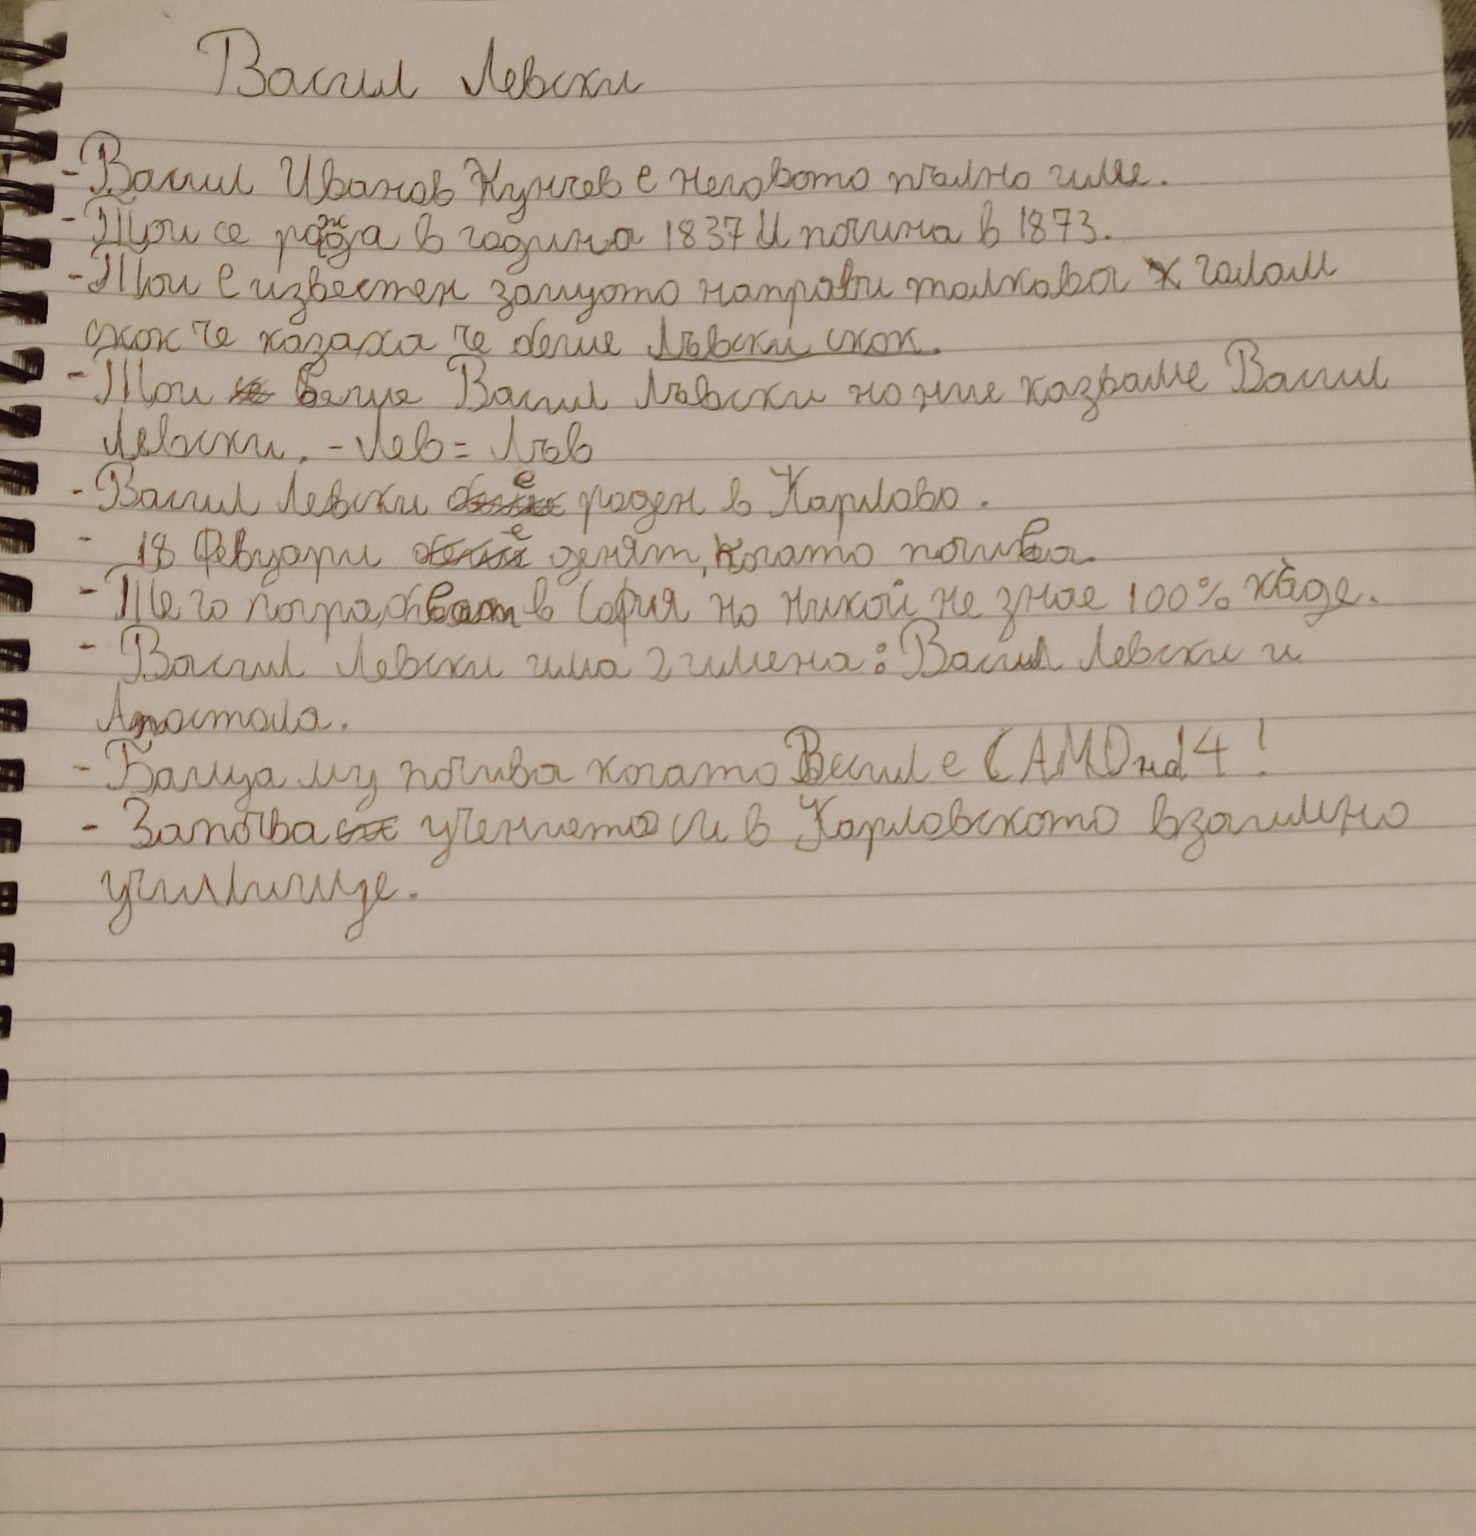 Васил Левски
-Васил Иванов Кунчев е неговото пълно име.
-Той се ражда в година 1837 И почина в 1873.
-Той е известен защото направи толкова голам
скок че казаха че беше лъвски скок.
-Той беше Васил Лъвски но ние казваме Васил
Левски. -Лев = Лъв
-Васил Левски е роден в Карлово.
- 18 Февуари е денят, когато почива.
- Те го погрбават в София но никой не знае 100% къде.
- Васил Левски има 2 имена: Васил Левски и
Апостола.
- Баща му почива когато Васил е САМО на 14!
- Запօчва учението си в Карловското взаимно
училище.